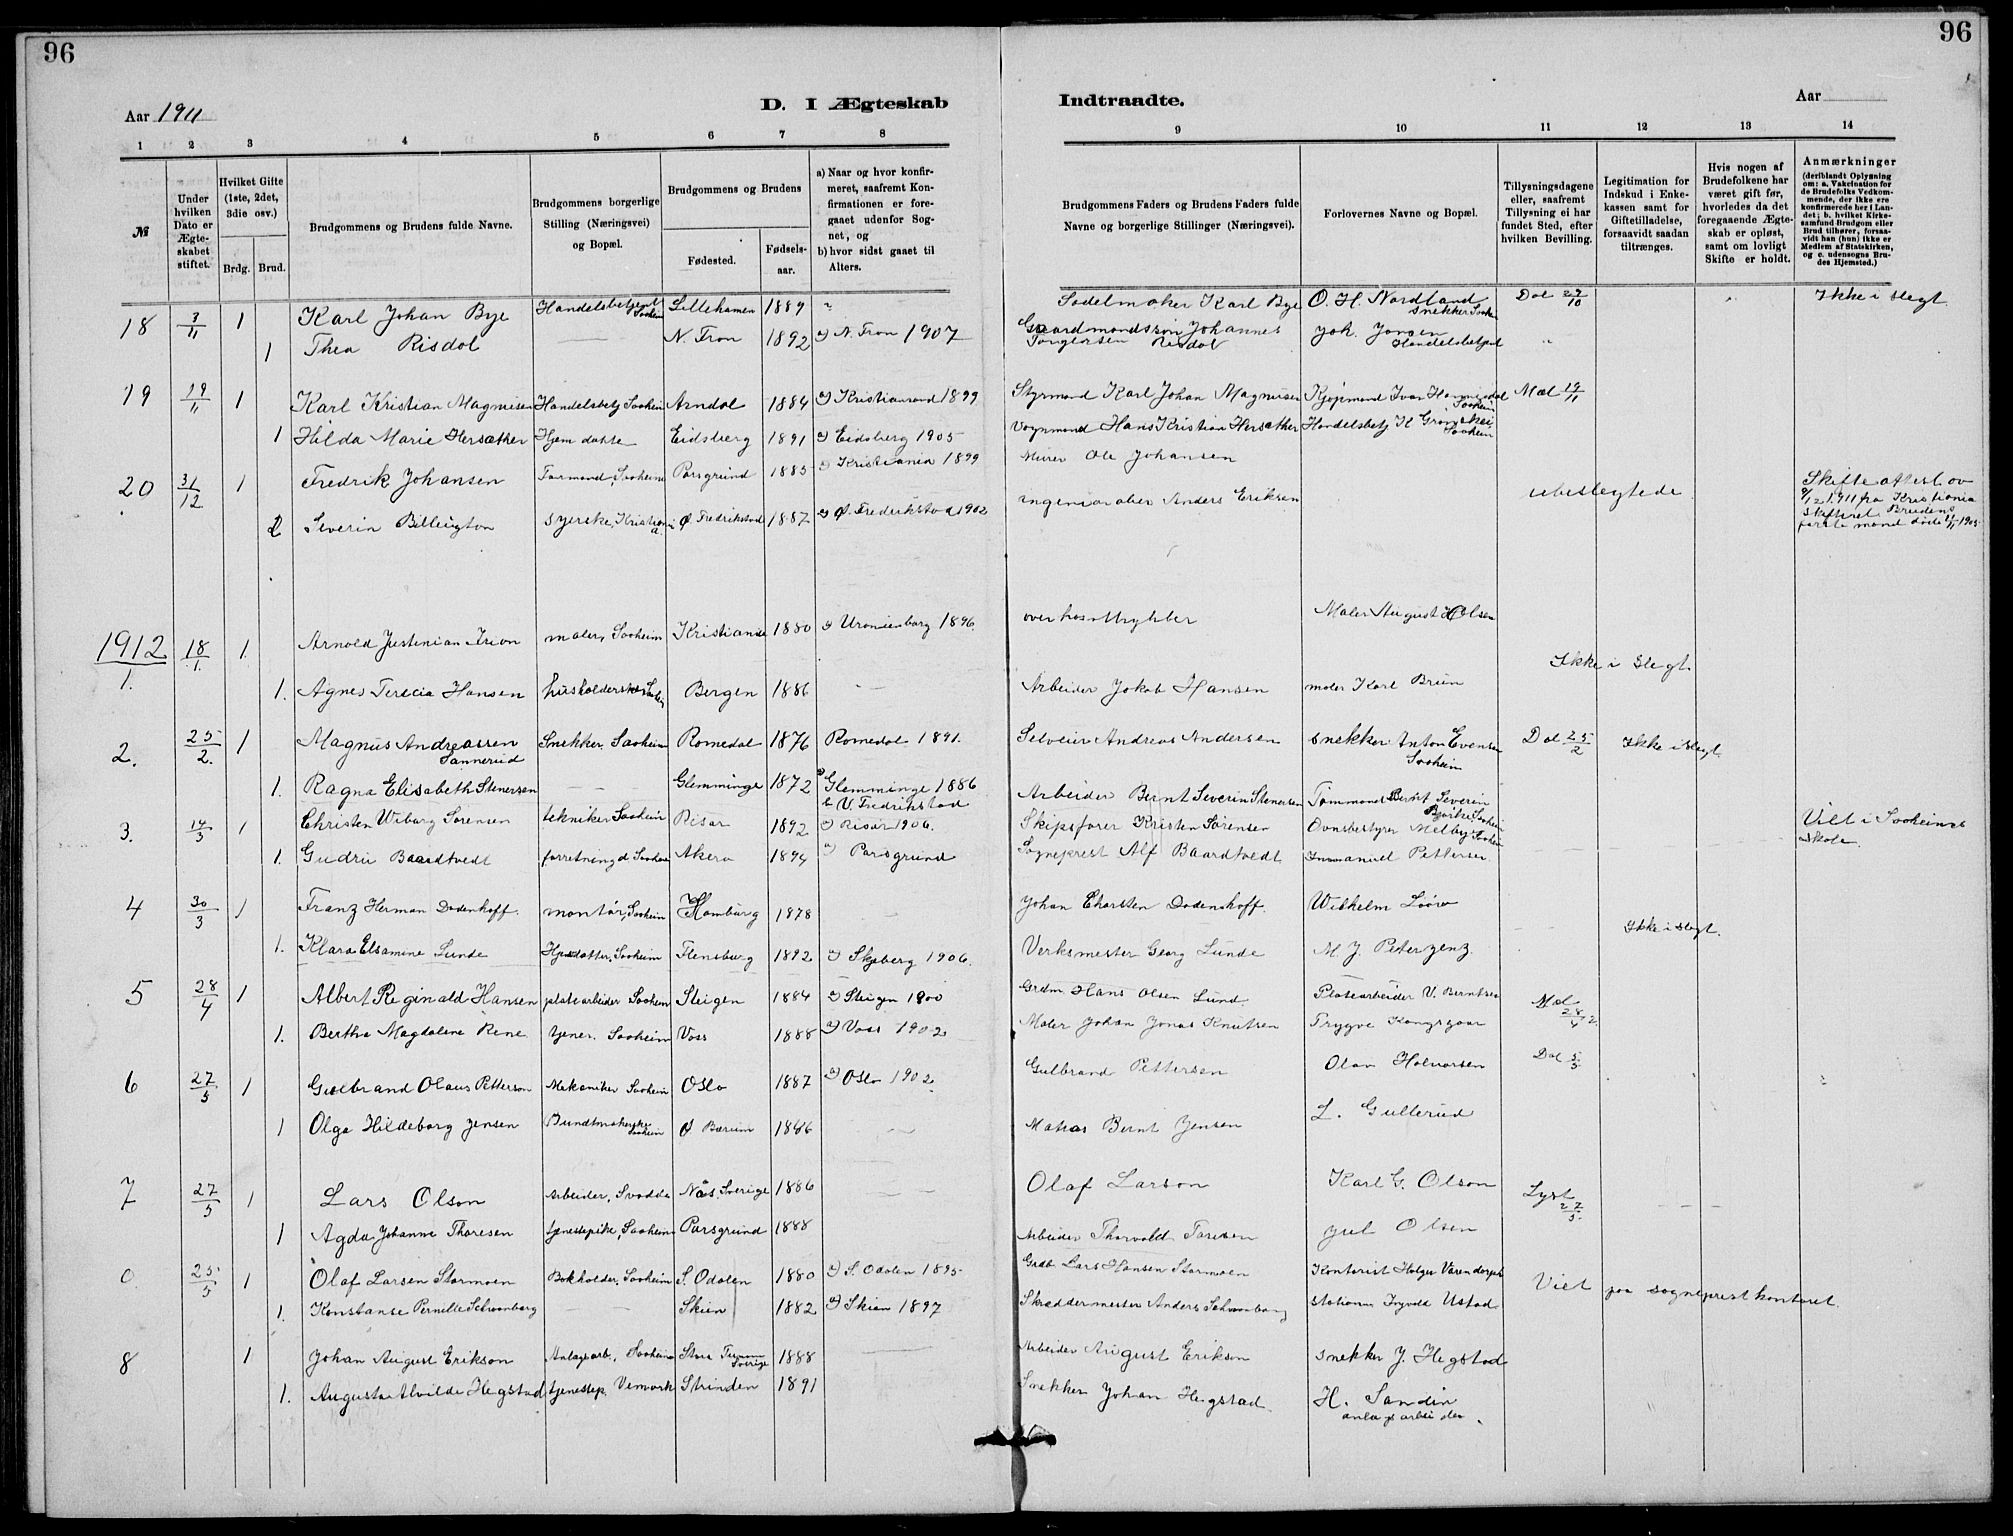 96
96
Aar 1911
D. I Ægteskab
Indtraadte.
Aar
1 2 3 4 5 6 7 8 9 10 11 12 13 14
№
Under hvilken Dato er Ægteskabet stiftet.
Hvilket Gifte (1ste, 2det, 3die osv.)
Brdg. Brud.
Brudgommens og Brudens fulde Navne.
Brudgommens borgerlige Stilling (Næringsvei) og Bopæl.
Brudgommens og Brudens
Fødested.
Fødsels-aar.
a) Naar og hvor konfirmeret, saafremt Konfirmationen er foregaaet udenfor Sognet, og
b) hvor sidst gaaet til Alters.
Brudgommens Faders og Brudens Faders fulde Navne og borgerlige Stillinger (Næringsvei).
Forlovernes Navne og Bopæl.
Tillysningsdagene eller, saafremt Tillysning ei har fundet Sted, efter hvilken Bevilling.
Legitimation for Indskud i Enkekassen samt for Giftetilladelse, forsaavidt saadan tiltrænges.
Hvis nogen af Brudefolkene har været gift før, hvorledes da det foregaaende Ægteskab er opløst, samt om lovligt Skifte er holdt.
Anmærkninger
(deriblandt Oplysning om: a. Vakcination for de Brudefolks Vedkommende, der ikke ere konfirmerede her i Landet; b. hvilket Kirkesamfund Brudgom eller Brud tilhører, forsaavidt han (hun) ikke er Medlem af Statskirken, og c. udensogns Brudes Hjemsted.)
18 3/11 1 Karl Johan Bye Handelsbetjent Saaheim Lillehamen 1889 Sadelmaker Karl Bye O. H. Nordland snekker Dal 29/10 Ikke i slegt
1 Thea Risdal N. Fron 1892 a) N. Fron 1907 Gaardmandssøn Johannes Risdal Joh. Jansen Handelsbetjent
19 19/11 1 Karl Kristian Magnusen Handelsbetj Saaheim Arndal 1884 a) Kristiansand 1899 Styrmand Karl Johan Magnusen Kjøpmand Ivar Saaheim Mæl 19/11
1 Hilda Marie Hersæther Hjem datte Eidsberg 1891 a) Eidsberg 1905 Vognmand Hans Kristian Hersæther Handelsbetj Saaheim
20 31/12 1 Fredrik Johansen Formand, Saaheim Porsgrund 1885 a) Kristiania 1899 Murer Ole Johansen ubeslegtede Skifteattest av 9/12 1911 fra Kristiania skifteret. Brudens første mand døde 1905
2 Severin Billington syerske, Kristiania Ø. Fredrikstad 1887 a) Ø. Fredrikstad 1902 Anders Eriksen
1912
1. 18/1. 1. Arnold Justenian Irion maler, Saaheim Kristiania 1880 a) Uranienborg 1896. Maler August Olsen Ikke i slegt.
1. Agnes Terecia Hansen Bergen 1886 Arbeider Jakob Hansen maler Karl Brun
2. 25/2. 1 Magnus Andreassen Sannerud Snekker, Saaheim Romedal 1876 Romedal 1891. Selveier Andreas Andersen snekker Anton Evensen Saaheim Dal 25/2 Ikke i slegt
1. Ragna Elisabeth Stenersen Glemminge 1872 a) Glemminge 1886 b. V. Fredrikstad Arbeider Bernt Severin Stenersen Tømmand Bernt Severin Saaheim
3. 14/3 1 Christen Wiborg Sørensen tekniker Saaheim Risør 1892 a) Risør 1906. Skipsfører Kristen Sørensen Ovnsbestyrer Melby Saaheim Viet i Saaheimes skole.
1. Gudrun Baardtvedt Akera 1894 a) Porsgrund Sogneprest Alf Baardtvedt Immanuel Pettersen.
4 30/3 1 Franz Herman Dodenhoff. montør, Saaheim Hamburg 1878 Johan Chorsten Dodenshoff. Wilhelm Ikke i slegt.
1. Klara Elsamine Lunde Hjemdatter, Saaheim Flensburg 1892 a) Skjeberg 1906. Verksmester Georg Lunde M. J. Peterzenz.
5 28/4 1 Albert Reginald Hansen platearbeider Saaheim Steigen 1884 a) Steigen 1900 Grdm Hans Olsen Lund. Platearbeider V. Berntsen Mæl 28/4 12
1. Bertha Magdalene Rene tjener. Saaheim Voss 1888 a) Voss 1902 Maler Johan Jonas Knutsen Trygve Kongsgaar
6 27/5 1 Gulbrand Olaus Petterson Mekaniker Saaheim Oslo 1887 a) Oslo 1902. Gulbrand Pettersen Olav Halvorsen Dal 5/5
1 Olga Hildeborg Jensen Bundtmakerske Saaheim Ø Bærum 1886 Matias Bernt Jensen L. Gullerud
7 27/5 1 Lars Olson Arbeider, Svadde Näs, Sverige 1886 Olaf Larson Karl G. Olson Lyst 27/5.
1 Agda Johanne Thoresen tjenestepike, Saaheim Porsgrund 1888 Arbeider Thorvald Toresen Jul Olsen
0 25/5 1 Olaf Larsen Stormoen Bokholder, Saaheim S. Odalen 1880 a) S. Odalen 1895 Grdb Lars Hansen Stormoen Kontorist Holger Varendorph Viet paa sogneprestkontoret.
1. Konstanse Pernille Schwanborg Skien 1882 a) Skien 1897 Skræddermester Anders Schwanborg Ingvald Ustad
8 1 Johan August Erikson Anlægsarb., Saaheim Stora Sverige 1888 Arbeider August Erikson snekker J. Hegstad
1. Augusta Alvilde Hegstad tjenestep. Vemork Strinden 1891 Snekker Johan Hegstad. H. Sandin anlægsarbeider.